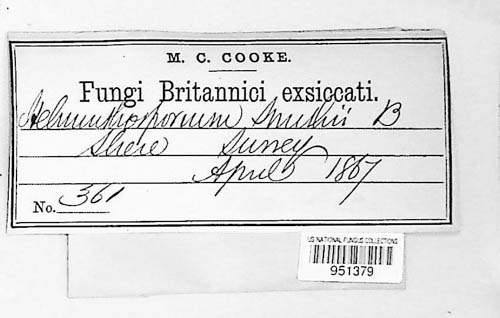 M. C. COOKE.
Fungi Britannici exsiccati.
Helminthosporium Smithii B
Shere Surrey
April 1867
No. 361
US NATIONAL FUNGUS COLLECTIONS
951379